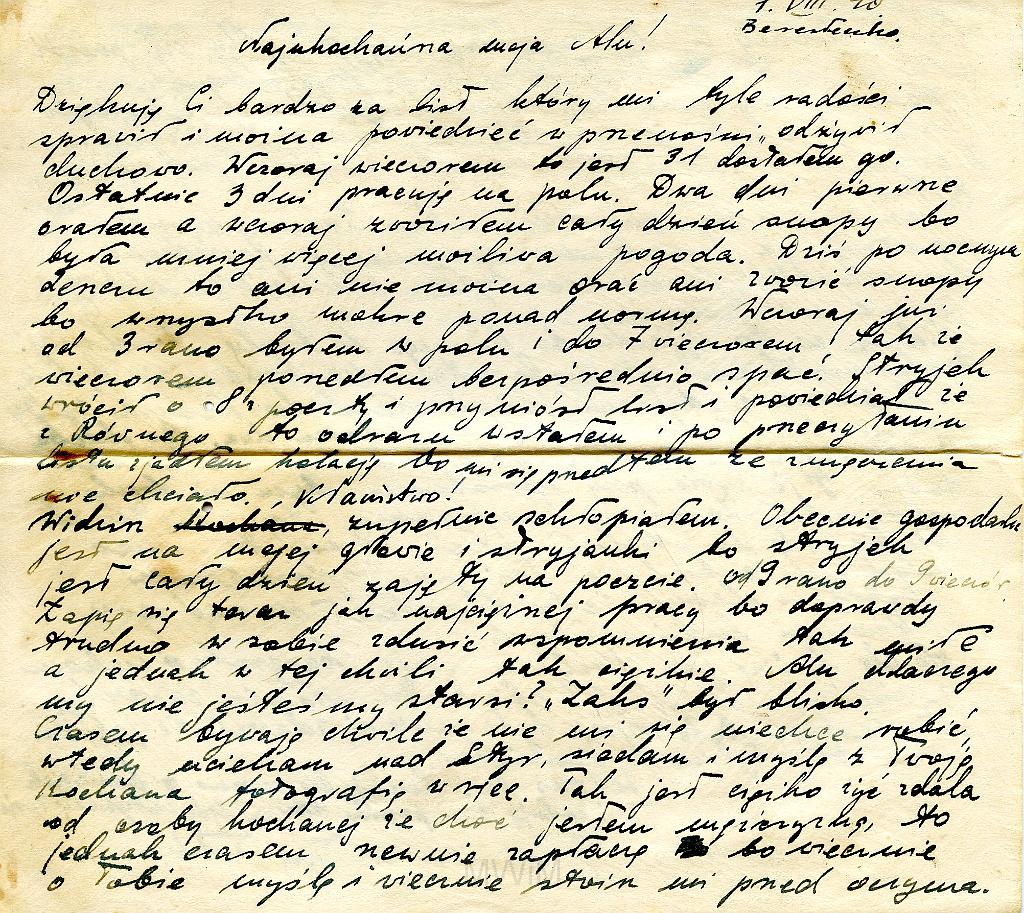 1. VIII. 40
Beresteczko.
Najukochańsza moja Alu!
Dziękuję Ci bardzo za list który mi tyle radości
sprawił i można powiedzieć w przenośni „odżywił
duchowo. Wczoraj wieczorem to jest 31 dostałem go.
Ostatnie 3 dni pracuję na polu. Dwa dni pierwsze
orałem a wczoraj zwoziłem cały dzień snopy bo
była mniej więcej możliwa pogoda. Dziś po nocnym
deszczu to ani nie można orać ani zwozić snopy
bo wszystko mokre ponad normę. Wczoraj już
od 3 rano byłem w polu i do 7 wieczorem tak że
wieczorem poszedłem bezpośrednio spać. Stryjek
wrócił o 8 z poczty i przyniósł list i powiedział że
z Równego to odrazu wstałem i po przeczytaniu
listu zjadłem kolację bo mi się przedtem ze zmęczenia
nie chciało. Kłamstwo!
Widzisz zupełnie schłopiałem. Obecnie gospodarka
jest na mojej głowie i stryjanki bo stryjek
jest cały dzień zajęty na poczcie. od 9 rano do 9 wieczór.
Zapię się teraz jak najcięższej pracy bo doprawdy
trudno w sobie zdusić wspomnienia tak miłe
a jednak w tej chwili tak ciężkie. Alu dlaczego
my nie jesteśmy starsi? „Zaks" był blisko.
Czasem bywają chwile że nie mi się niechce robić,
wtedy uciekam nad Styr, siadam i myślę z Twoją
Kochana fotografią w ręce. Tak jest ciężko żyć zdala
od osoby kochanej że choć jestem mężczyzną, to
jednak czasem rzewnie zapłaczę bo wiecznie
o Tobie myślę i wiecznie stoisz mi przed oczyma.